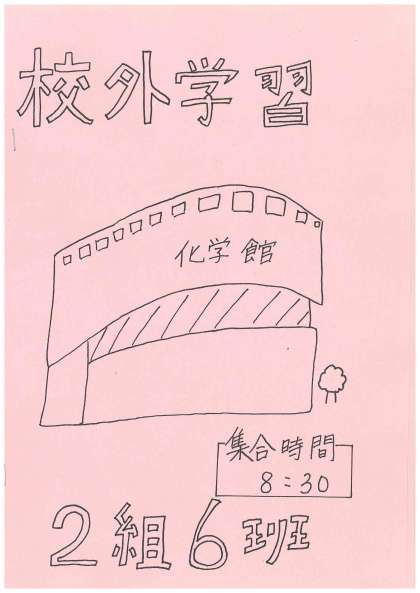 校外学習
化学館
集合時間
8:30
2組6班